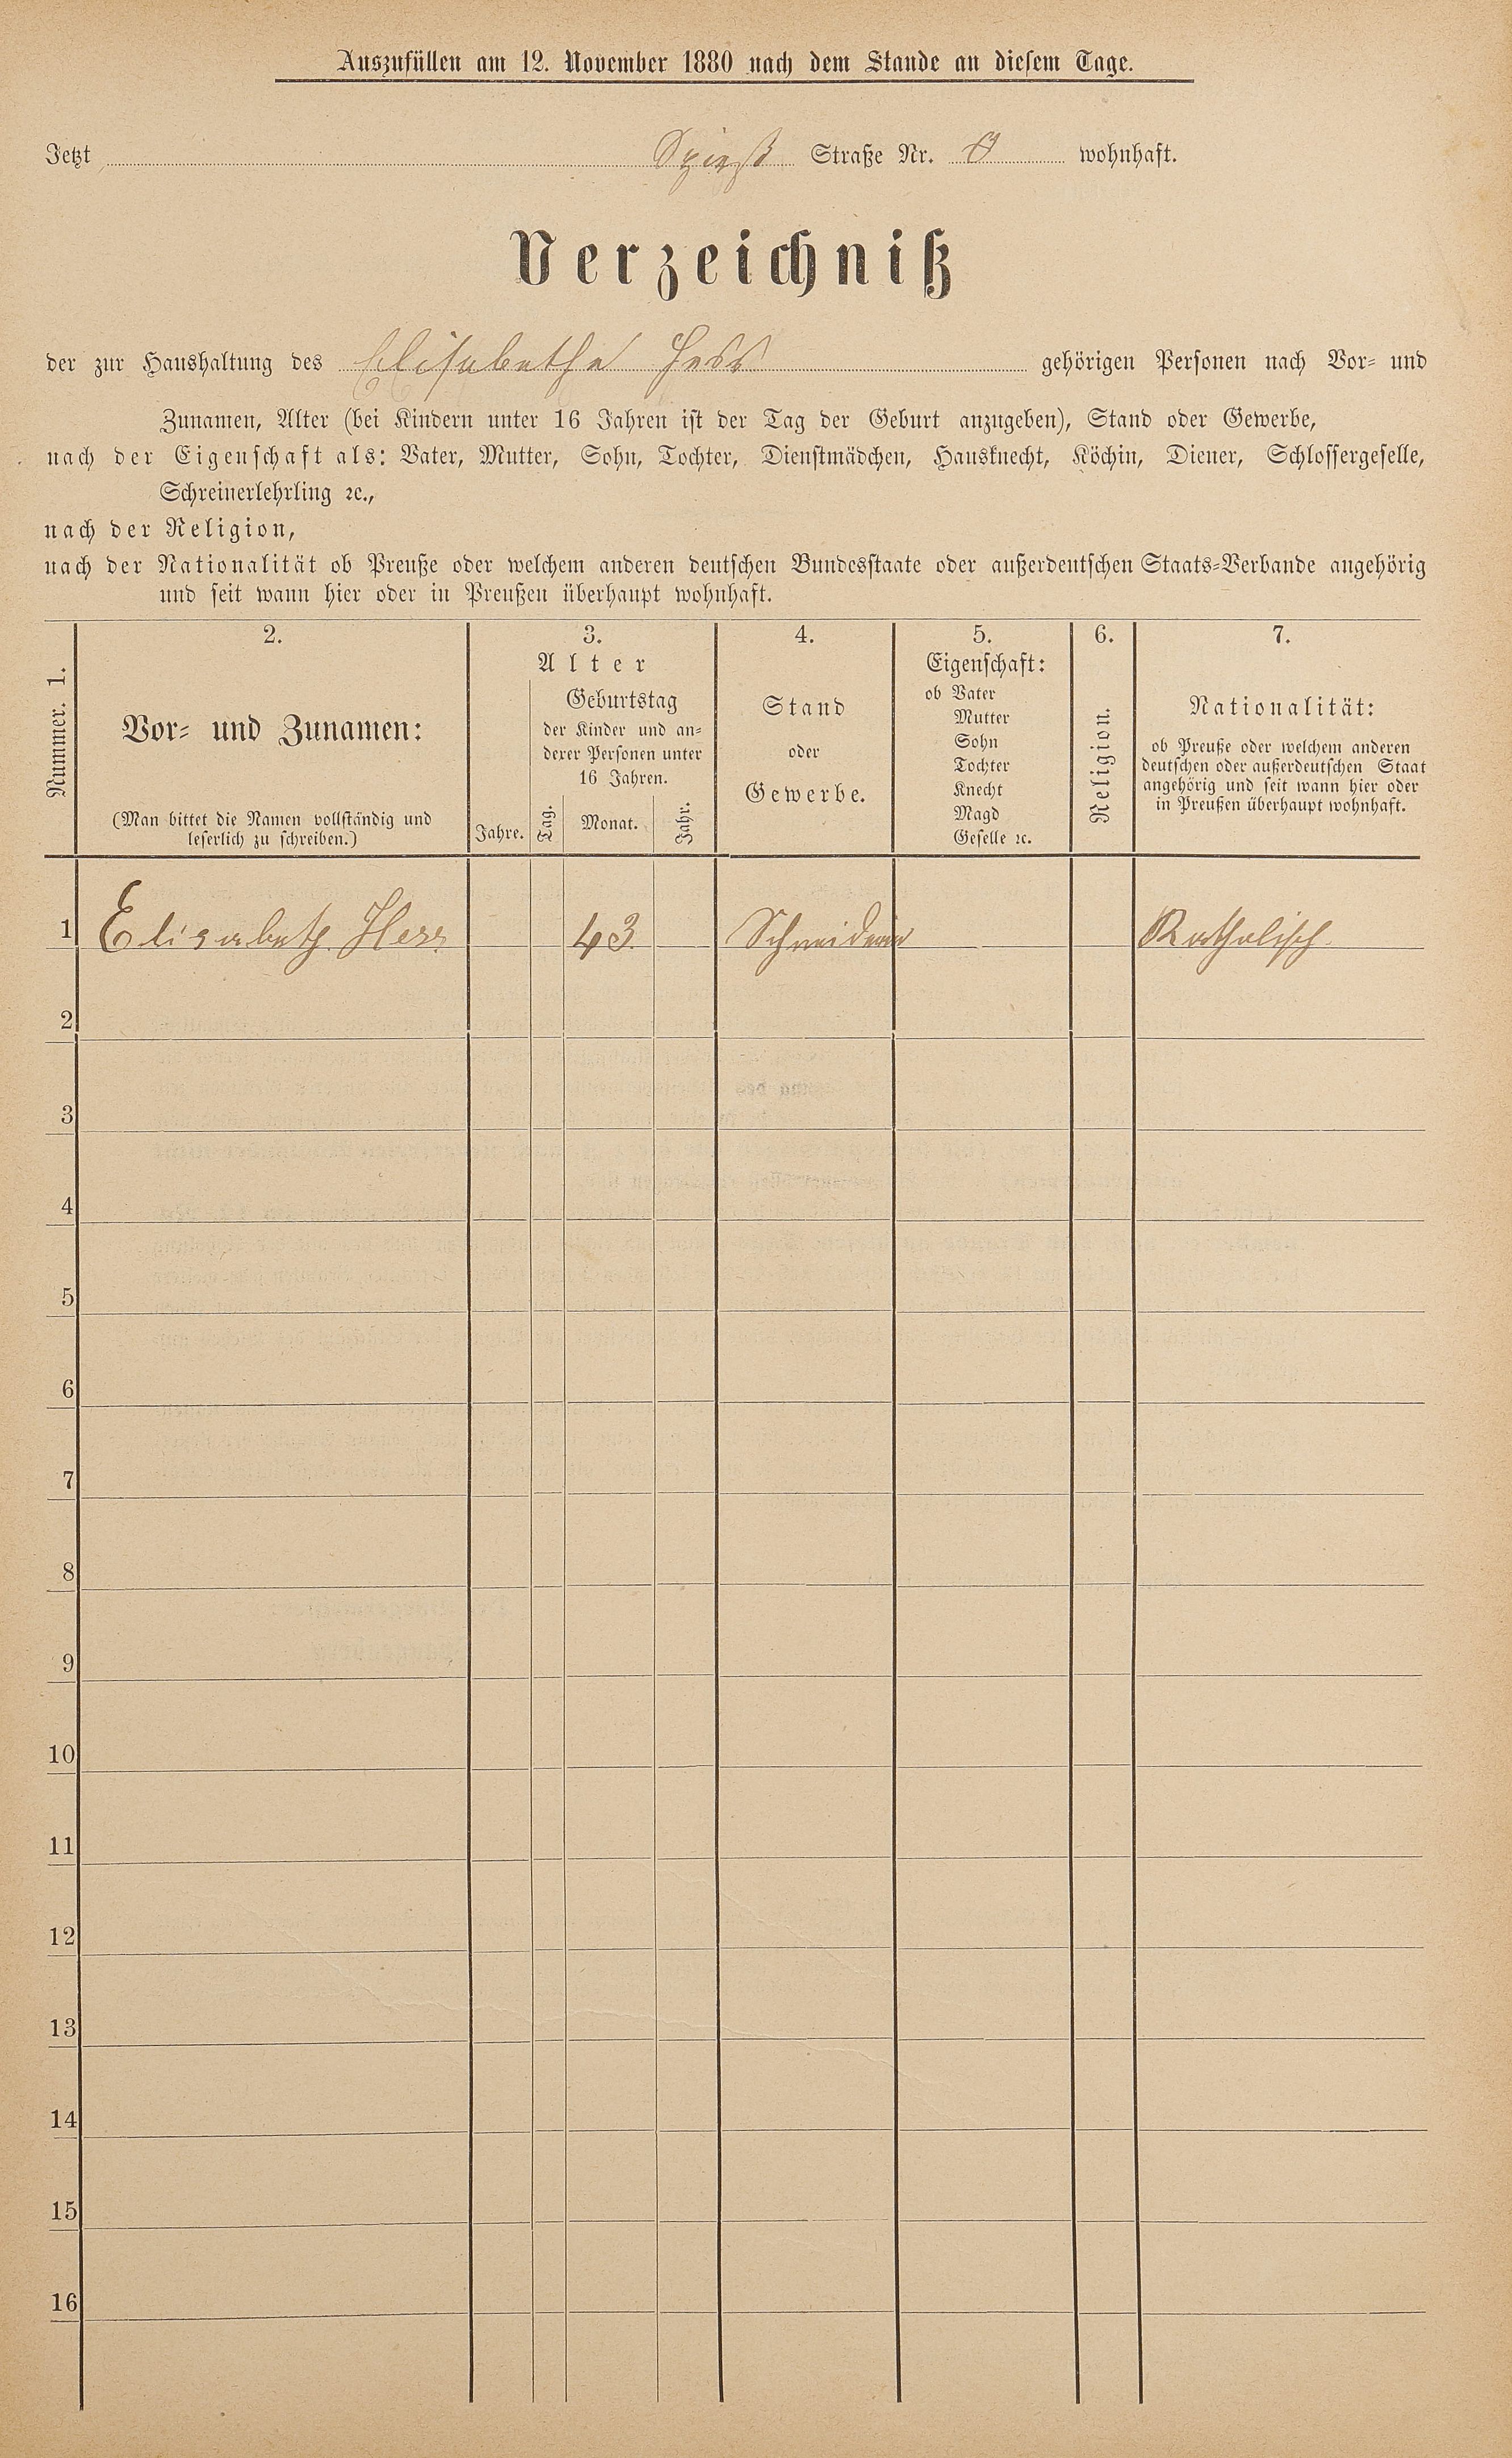 Auszufüllen am 12. November 1880 nach dem Stande an diesem Tage.
Jetzt Spieß Straße Nr. 8 wohnhaft.
Verzeichniß
der zur Haushaltung des Elisabetha Hess gehörigen Personen nach Vor- und
Zunamen, Alter (bei Kindern unter 16 Jahren ist der Tag der Geburt anzugeben), Stand oder Gewerbe,
nach der Eigenschaft als: Vater, Mutter, Sohn, Tochter, Dienstmädchen, Hausknecht, Köchin, Diener, Schlossergeselle,
Schreinerlehrling ꝛc.,
nach der Religion,
nach der Nationalität ob Preuße oder welchem anderen deutschen Bundesstaate oder außerdeutschen Staats-Verbande angehörig
und seit wann hier oder in Preußen überhaupt wohnhaft.
Nummer. 1.
2.
Vor- und Zunamen:
(Man bittet die Namen vollständig und
leserlich zu schreiben.)
3.
Alter
Jahre.
Geburtstag
der Kinder und an-
derer Personen unter
16 Jahren.
Tag.
Monat.
Jahr.
4.
Stand
oder
Gewerbe.
5.
Eigenschaft:
ob Vater
Mutter
Sohn
Tochter
Knecht
Magd
Geselle ꝛc.
6.
Religion.
7.
Nationalität:
ob Preuße oder welchem anderen
deutschen oder außerdeutschen Staat
angehörig und seit wann hier oder
in Preußen überhaupt wohnhaft.
1 Elisabeth Hess 43 Schneiderin Katholisch
2
3
4
5
6
7
8
9
10
11
12
13
14
15
16